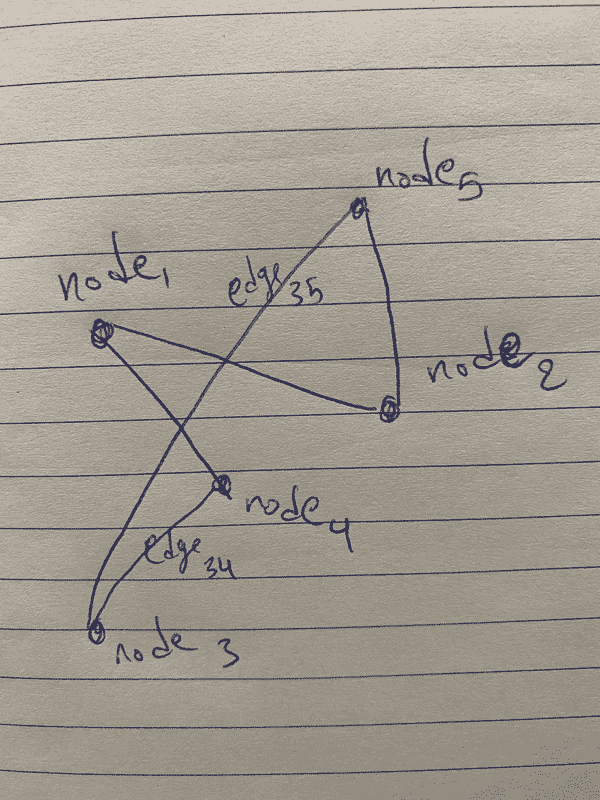 node5
node1
edge35
node2
node4
edge34
node 3